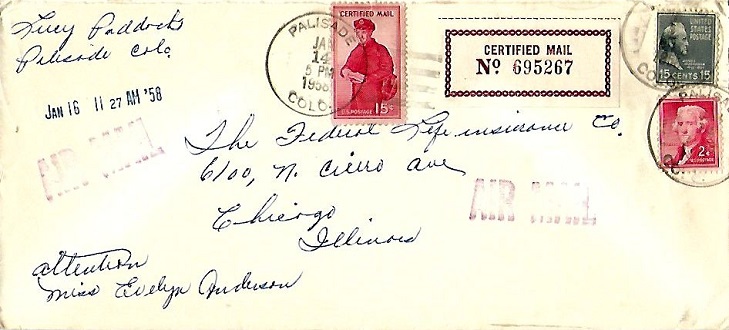 Lucy Paddocks
Palisade Colo.
JAN 16 11 27 AM '58
PALISADE
JAN
14
5 PM
1958
COLO.
CERTIFIED MAIL
15¢
U.S. POSTAGE
CERTIFIED MAIL
No 695267
UNITED STATES POSTAGE
15 CENTS 15
COLO.
PALISADE
2¢
U.S. POSTAGE
AIR MAIL
The Federal Life insurance Co.
6100, N. Cicero ave
Chicago
Illinois
AIR MAIL
attention
Miss Evelyn Anderson